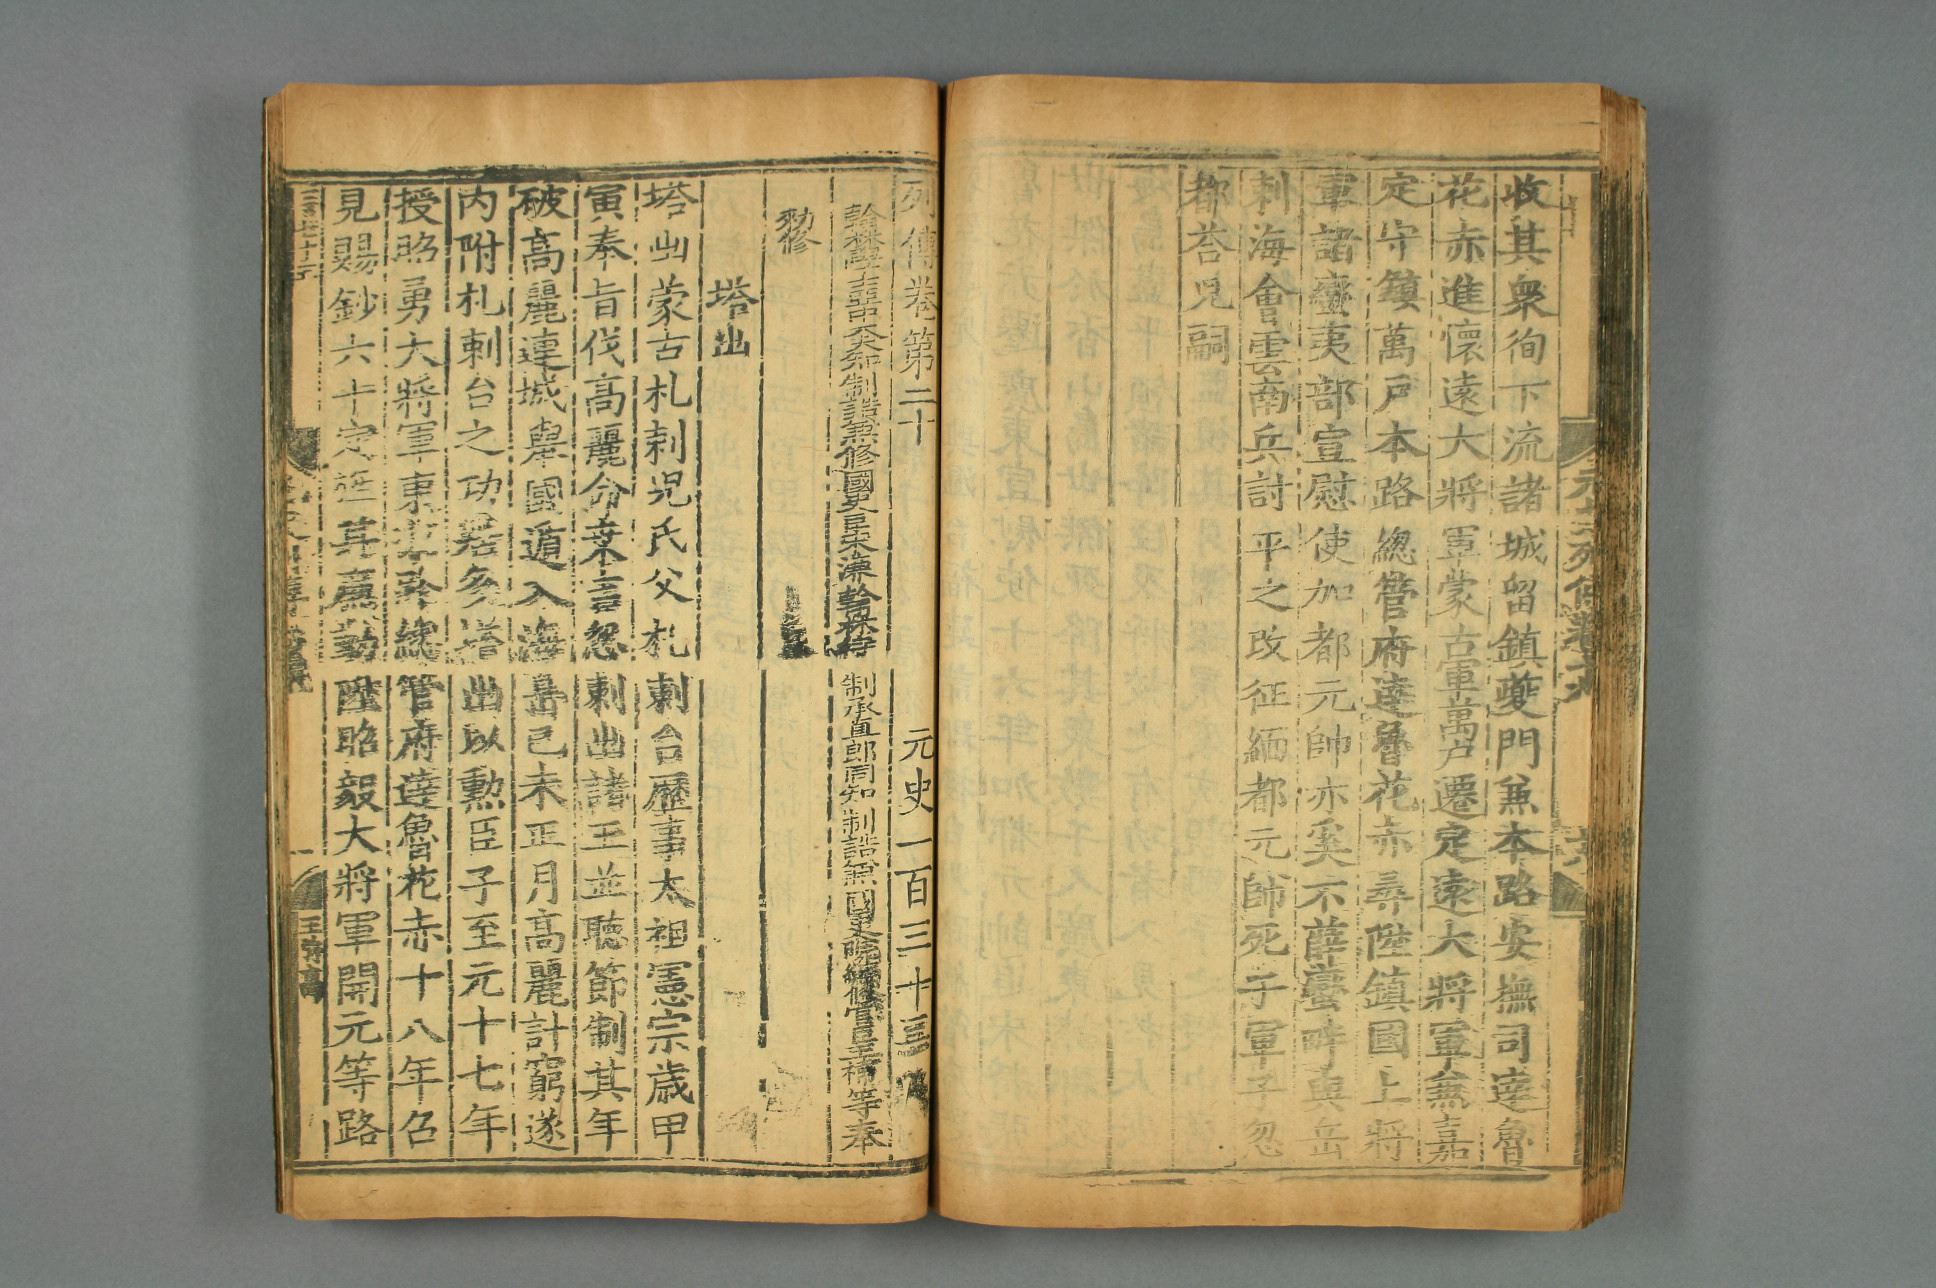 收其衆徇下流諸城留鎮夔門兼本路安撫司達魯
花赤進懷遠大將軍蒙古軍萬戶遷定遠大將軍兼嘉
定守鎮萬戶本路總管府達魯花赤尋陞鎮國上將
軍諸蠻夷部宣慰使加都元帥亦奚不薛蠻畔與岳
剌海會雲南兵討平之改征緬都元帥死子軍子忽
都荅兒嗣
列傳卷第二十
元史一百三十三
翰林學士亞中大夫知制誥兼修國史臣宋濂翰林待
制承直郎同知制誥兼國史院編修官臣王禕等奉
勑修
塔出
塔出蒙古札剌兒氏父札剌台歷事太祖憲宗歲甲
寅奉旨伐高麗命桒吉忽剌出諸王並聽節制其年
破高麗連城舉國遁入海島己未正月高麗計窮遂
內附札剌台之功居多塔出以勲臣子至元十七年
授昭勇大將軍東京路總管府達魯花赤十八年召
見賜鈔六十定旌其廉勤陞昭毅大將軍開元等路